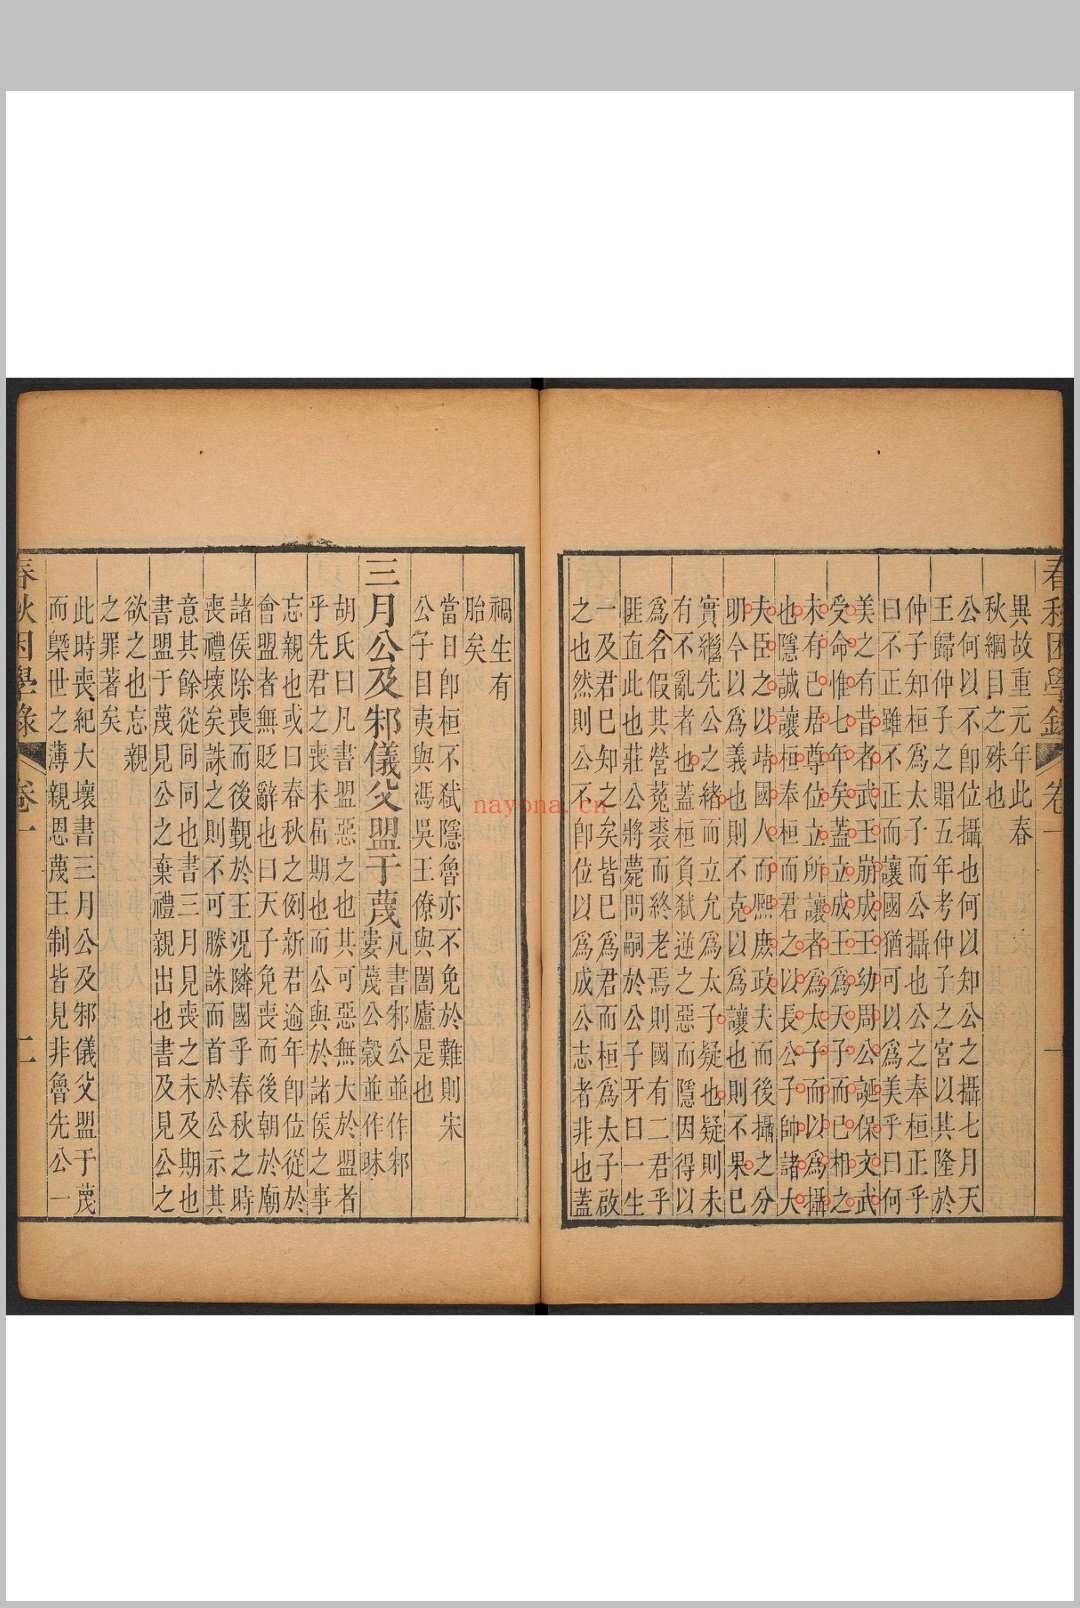 春秋困學錄 卷一 一
異故重元年此春
秋綱目之殊也
公何以不卽位攝也何以知公之攝七月天
王歸仲子之賵五年考仲子之宮以其隆於
仲子知桓爲太子而公攝也公之奉桓正乎
曰不正雖不正而讓國猶可以爲美乎曰何
美之有昔者武王崩成王幼周公誕保文武
受命惟七年矣蓋立成王爲天子而已相之
未有已居尊位立所讓者爲太子而以爲攝
也隱誠讓桓奉桓而君之以長公子師諸大
夫臣之以靖國人而熈庶政夫而後攝之分
明今以爲義也則不克以爲讓也則不果已
實繼先公之緒而立允爲太子疑也疑則未
有不亂者也蓋桓負弑逆之惡而隱因得以
爲名假其營菟裘而終老焉則國有二君乎
匪直此也莊公將薨問嗣於公子牙曰一生
一及君已知之矣皆已爲君而桓爲太子啟
之也然則公不卽位以爲成公志者非也蓋
禍生有
胎矣
當日卽桓不弑隱魯亦不免於難則宋
公子目夷與馮吳王僚與闔廬是也
三月公及邾儀父盟于蔑凡書邾公並作邾
婁蔑公穀並作昧
胡氏曰凡書盟惡之也其可惡無大於盟者
乎先君之喪未屆期也而公與於諸侯之事
忘親也或曰春秋之例新君逾年卽位從於
會盟者無貶辭也曰天子免喪而後朝於廟
諸侯除喪而後覲於王况隣國乎春秋之時
喪禮壞矣誅之則不可勝誅而首於公示其
意其餘從同同也書三月見喪之未及期也
書盟于蔑見公之棄禮親出也書及見公之
欲之也忘親
之罪著矣
此時喪紀大壞書三月公及邾儀父盟于蔑
而槩世之薄親恩蔑王制皆見非魯先公一
春秋困學錄 卷一 二
nayona.cn